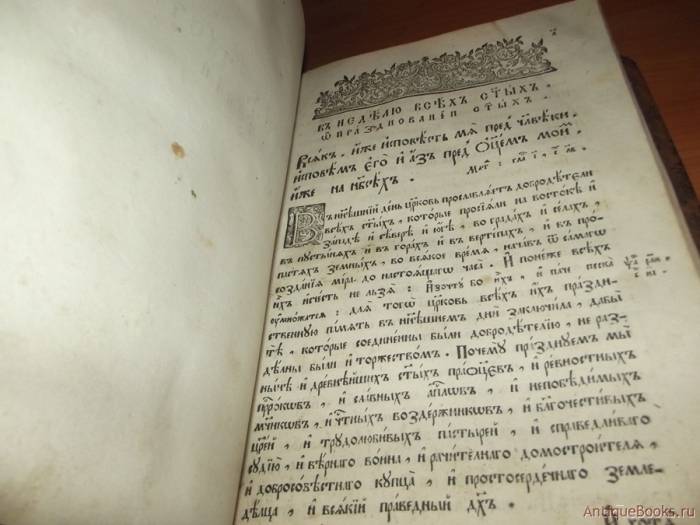 въ недѣлю всѣхъ ст҃ыхъ.
ѡ празднованіи ст҃ыхъ.
Всякъ иже исповѣсть мѧ пред̾ человѣки
исповѣмъ его и азъ пред̾ оц҃емъ мои҆мъ
иже на нб҃сѣхъ.
Въ нн҃ѣшнїй день церковь прославлѧетъ добродѣтели
всѣхъ ст҃ыхъ, которые просїѧли на востокѣ и
западѣ и сѣверѣ и югѣ, во градахъ и селахъ,
въ пустынѧхъ и въ горахъ и въ вертепѣхъ, и въ про-
пастѧхъ земныхъ, во всѧкое времѧ, начавъ ѿ самагѡ
созданїѧ мїра до настоѧщагѡ часа. И понеже всѣхъ
ихъ исчесть не льзѧ: Изочту бо ихъ, и паче песка
оумножатсѧ: для тогѡ церковь всѣхъ ихъ праздни-
ственную памѧть въ нн҃ѣшнемъ дни заключила, дабы
тѣ, которые соединены были добродѣтелїю, не раз-
дѣлны были и торжествомъ. Почему празднуемъ мы
нынѣ и древнѣйшихъ ст҃ыхъ праоц҃евъ, и ревностныхъ
прⷪ҇рокѡвъ, и славныхъ ап҃лѡвъ, и непобѣдимыхъ
мч҃нкѡвъ, и чⷭ҇тныхъ воздержникѡвъ, и бл҃гочестивыхъ
цр҃ей, и трудолюбивыхъ пастырей, и справедливагѡ
судїю, и вѣрнагѡ воина, и рачителнагѡ домостроителѧ,
и добросовѣстнагѡ купца, и простосердечнагѡ земле-
дѣлца, и всѧкїй праведный дх҃ъ.
AntiqueBooks.ru